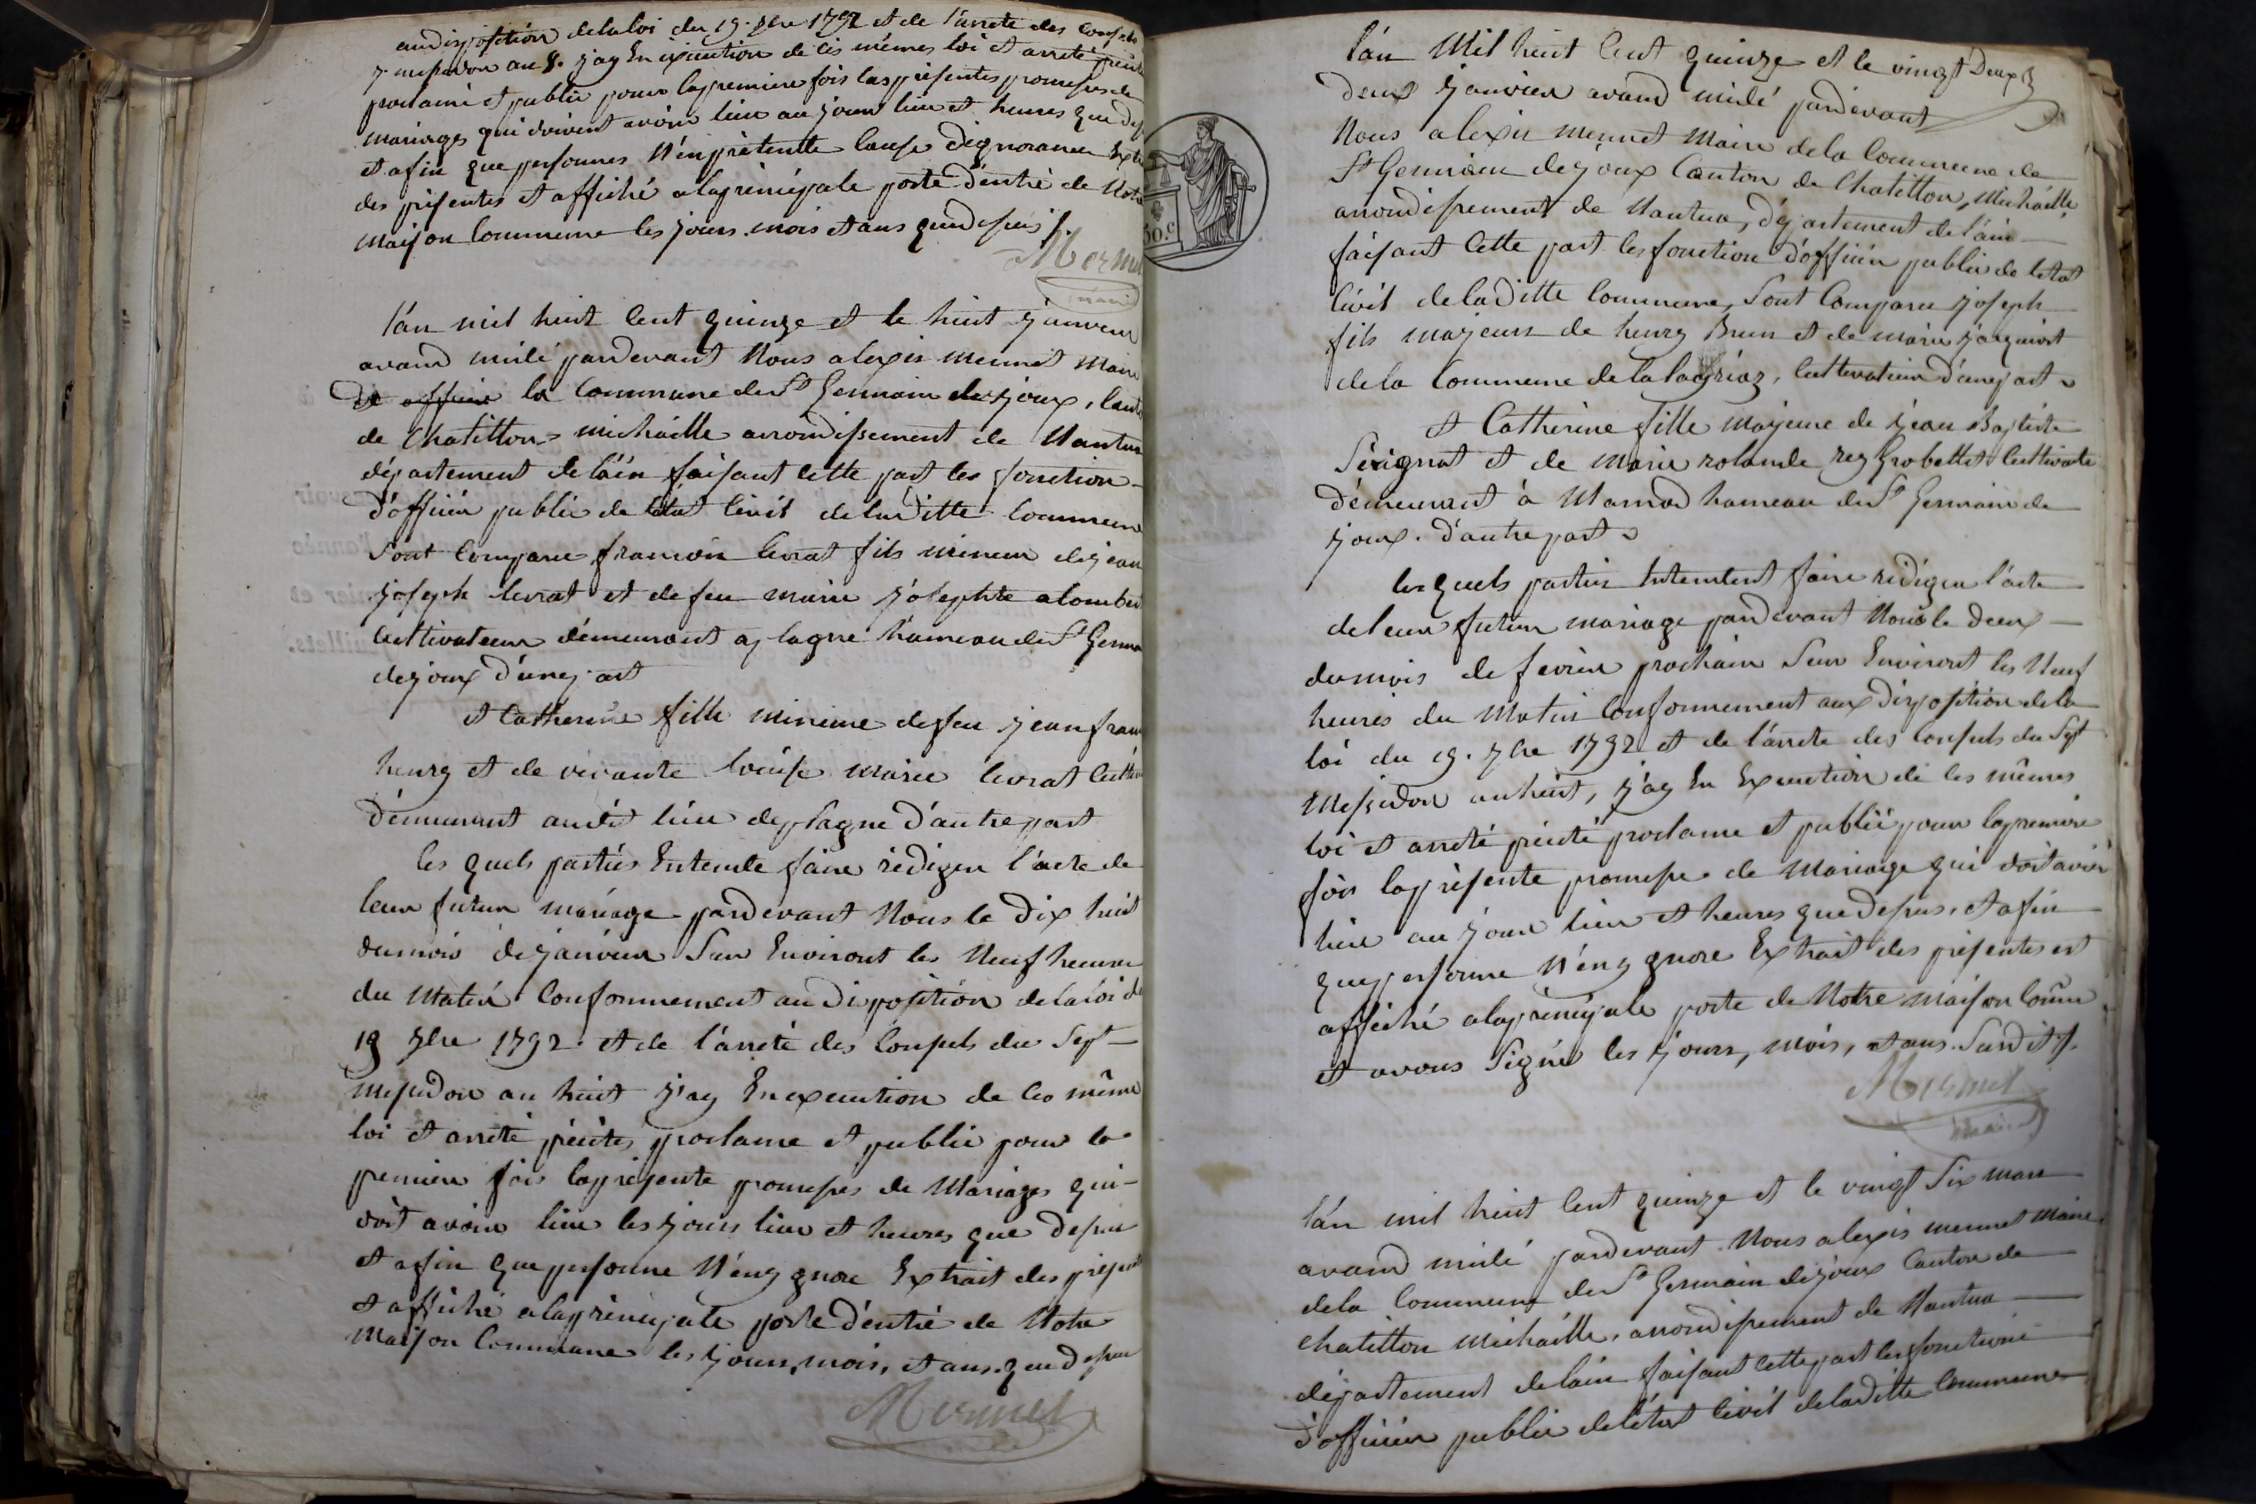 aux disposition de la loi du 19. 7bre 1792 et de l'arrete des Consuls
7. messidor an 8. j'ay En execution de ces mêmes loi et arreté précité
proclamé et publié pour la premiere fois les présentes promesses de
mariages qui doivent avoir lieu au jour lieu et heures que des
et afin que personnes N'en prétentte cause D'ignorance Extr
des présentes et affiché a la principale porte D'entré de Notre
Maison Commune les jours. mois et ans que dessus
Mermet
maire
l'an mil huit Cent quinze et le huit janvier
avand midi pardevant Nous alexis mermet Maire
de la Commune de St Germain de joux, Cant
de Chatillon michaille arrondissement de Nantua
département de l'ain faisant cette part les fonction
d'officier public de l'état Civil de laditte Commune
Sont Comparu francois levrat fils mineur de jean
joseph levrat et de feu marie josephte alombert
Cultivateur demeurant a plagne hameau de St Germain
de joux d'une part
et Catherine fille mineure de feu jean fran
henry et de vivante louise marie levrat Cultiv
Demeurant audit lieu de plagne D'autre part
les quels parties Entende faire rédiger l'acte de
leur futur mariage pardevant Nous le Dix huit
du mois de janvier Sur Environt les Neuf heures
du Matin Conformement au Disposition de la loi du
19 7bre 1792. et de l'arreté des Consuls du Sept
messidor an huit j'ay En execution de Ces même
loi et arreté précités proclame et publié pour la
premiere fois la présente promesses de Mariages qui
doit avoir lieu les jours lieu et heures que dessus
et afin que personne N'en ygnore Extrait des présent
et affiché a la principale porte D'entré de Notre
Maison Commune les jours, mois, et ans. que dessus
Mermet
l'an Mil huit Cent quinze et le vingt Deux
deux janvier avand midi pardevant
Nous alexis mermet Maire de la Commune de
St Germain de joux Canton de Chatillon, Michaille,
arrondissement de Nantua, département de l'ain
faisant Cette part les fonction d'officier public de l'etat
Civil de laditte Commune, Sont Comparu joseph
fils majeur de henry Brun et de marie jacquinot
de la Commune de la , Cultivateur d'une part
et Catherine fille majeure de jean Baptiste
Sérignat et de Marie rolande rey Grobellet Cultivate
démeurant à Marnod hameau de St Germain de
joux. d'autre part
les quels parties Entendent faire rédiger l'acte
de leur futur mariage pardevant Nous le deux
du mois de fevrier prochain Sur Environt les Neuf
heures du Matin Conformement aux disposition de la
loi du 19. 7bre 1792 et de l'arrete des Consuls du Sept
Messidor an huit, j'ay En Execution de ces mêmes
loi et arreté précité proclame et publié pour la premiere
fois la présente promesse de Mariage qui doit avoir
lieu au jour lieu et heures que dessus. et afin
que personne N'en ygnore Extrait des présentes est
affiché a la principale porte de Notre Maison Comm
et avons Signé les jours, mois, et ans. Sus dits
Mermet
maire
50.c
l'an mil huit Cent quinze et le vingt Six mars
avand midi pardevant Nous alexis mermet Maire
de la Commune de St Germain de joux Canton de
chatillon Michaille, arrondissement de Nantua
département de l'ain faisant cette part les fonctions
d'officier public de l'état Civil de laditte Commune